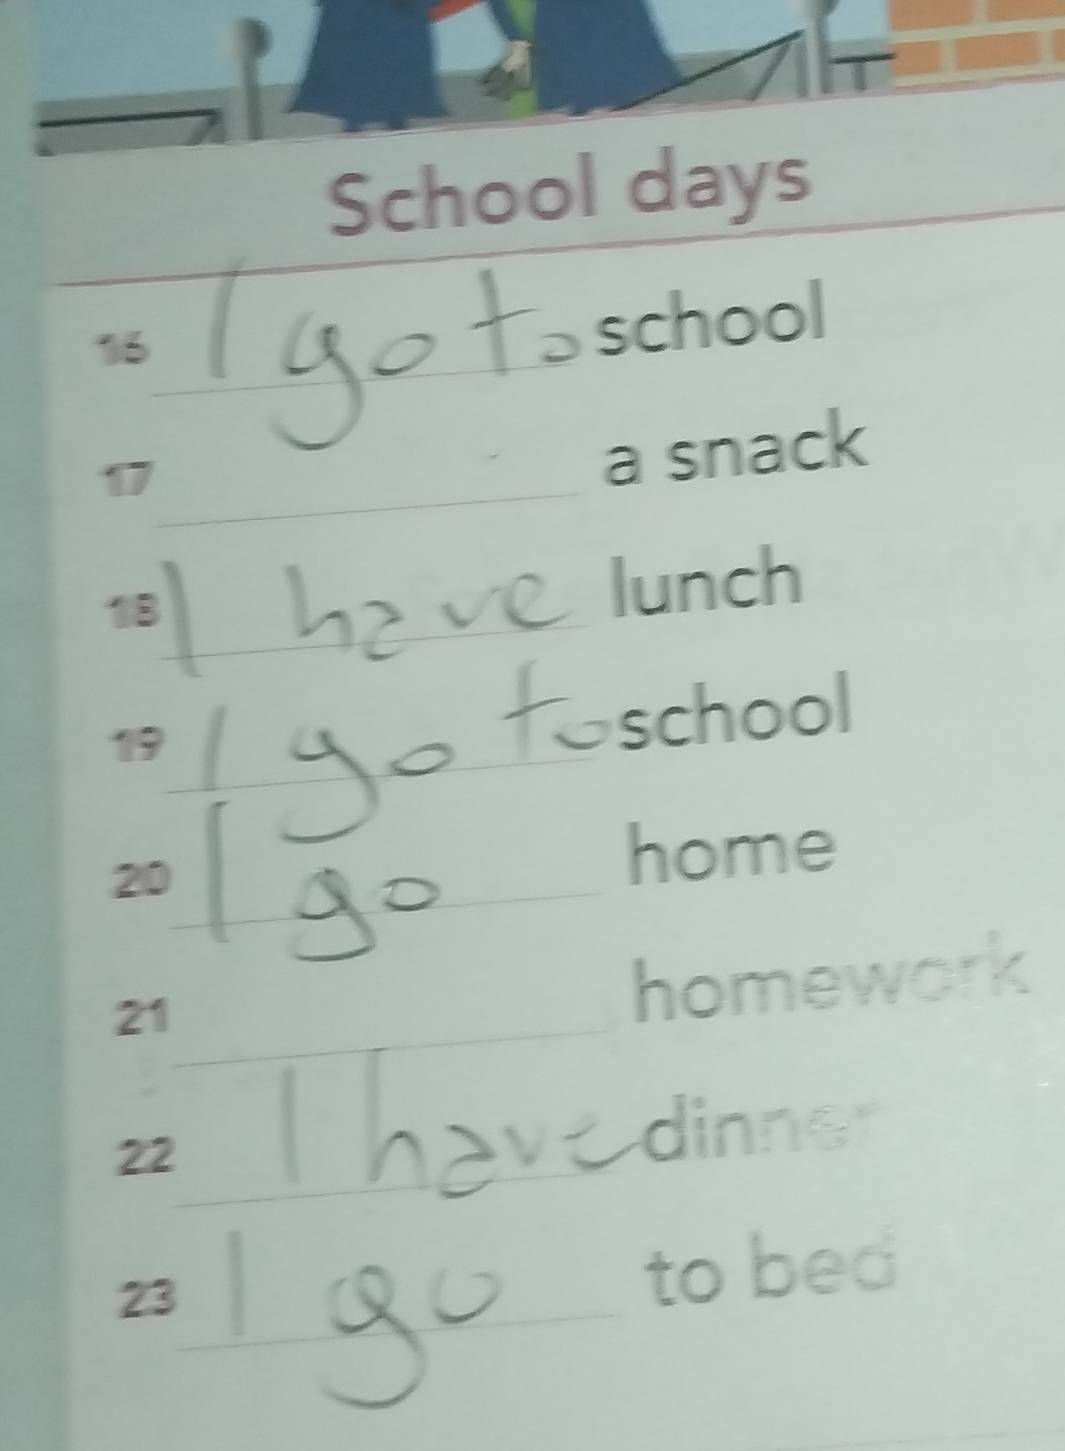 School days
16 I go to school
17 a snack
18 I have lunch
19 I go to school
20 I go home
21 homework
22 I have dinner
23 I go to bed